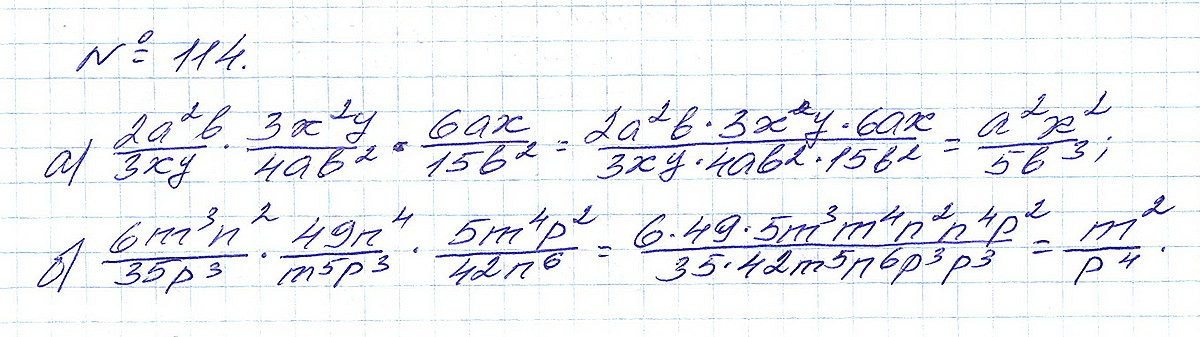 № 114.
а) 2a²b/3xy · 3x²y/4ab² · 6ax/15b² = 2a²b·3x²y·6ax/3xy·4ab²·15b² = a²x²/5b³;
б) 6m³n²/35p³ · 49n⁴/m⁵p³ · 5m⁴p²/42n⁶ = 6·49·5m³m⁴n²n⁴p²/35·42m⁵n⁶p³p³ = m²/p⁴.